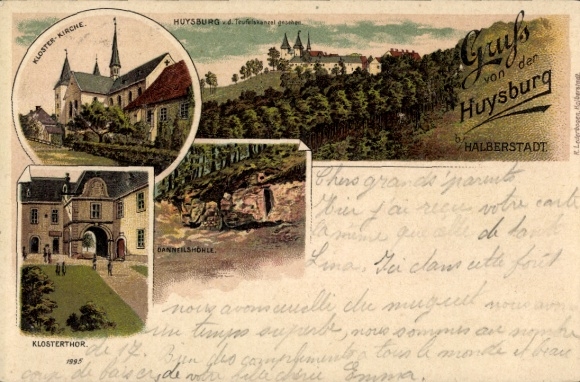 KLOSTER-KIRCHE.
HUYSBURG v. d. Teufelskanzel gesehen.
Gruss
von der
Huysburg
b. HALBERSTADT.
DANNEILSHÖHLE.
KLOSTERTHOR.
1895
Chers grands parents
Hier j'ai reçu votre carte
la même que celle de tante
Lina. Ici dans cette forêt
nous avons cueilli du muguet nous avons
un temps superbe, nous sommes au nombre
de 17. Bien des compliments a tous le monde et beau
coup de baisers de votre Emma.